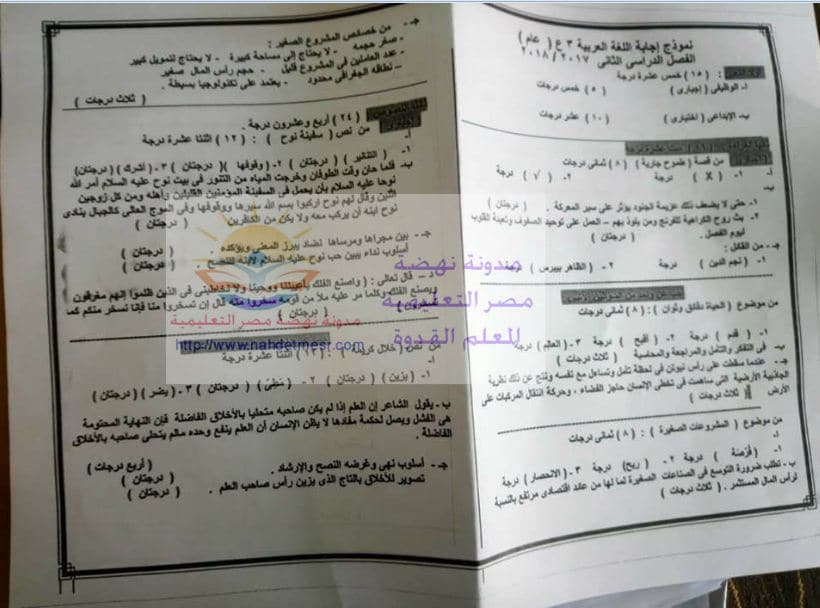 نموذج إجابة اللغة العربية ٣ ع ( عام )
الفصل الدراسي الثانى ٢٠١٧ / ٢٠١٨
: ( ١٥ ) خمس عشرة درجة
أ- الوظيفى ( إجبارى ) ( ٥ ) خمس درجات
ب- الإبداعى ( اختيارى ) ( ١٠ ) عشر درجات
ست عشرة درجة
من قصة ( طموح جارية ) ( ٨ ) ثمانى درجات
أ- ١- ( X ) درجة ٢- ( √ ) درجة
ب-
١- حتى لا يضعف ذلك عزيمة الجنود يؤثر على سير المعركة . ( درجتان )
٢- بث روح الكراهية للفرنج ومن يلوذ بهم – العمل على توحيد الصفوف وتعبئة القلوب
ليوم الفصل . ( درجتان )
جـ - من القائل :
١- ( نجم الدين ) درجة ٢- ( الظاهر بيبرس ) درجة
من موضوع ( الحياة دقائق وثوان ) : ( ٨ ) ثمانى درجات
أ- ١- ( قدم ) درجة ٢- ( أقبح ) درجة ٣- ( العالم ) درجة
ب- فى التفكر والتأمل والمراجعة والمحاسبة ( ثلاث درجات )
جـ - عندما سقطت على رأس نيوتن فى لحظة تأمل وتساءل مع نفسه ونتج عن ذلك نظرية
الجاذبية الأرضية التى ساهمت فى تخطى الإنسان حاجز الفضاء ، وحركة انتقال المركبات على
الأرض ( ثلاث درجات )
من موضوع ( المشروعات الصغيرة ) : ( ٨ ) ثمانى درجات
أ- ١- ( فُرْصَة ) درجة ٢- ( ربح ) درجة ٣- ( الانحصار ) درجة
ب- تطلب ضرورة التوسع فى الصناعات الصغيرة لما لها من عائد اقتصادى مرتفع بالنسبة
لرأس المال المستثمر . ( ثلاث درجات )
جـ - من خصائص المشروع الصغير :
- صغر حجمه - لا يحتاج إلى مساحة كبيرة - لا يحتاج لتمويل كبير
- عدد العاملين فى المشروع قليل - حجم رأس المال صغير
- نطاقه الجغرافى محدود - يعتمد على تكنولوجيا بسيطة .
( ثلاث درجات )
( ٢٤ ) أربع وعشرون درجة .
من نص ( سفينة نوح ) : ( ١٢ ) اثنتا عشرة درجة
أ- ١- ( التنانير ) ( درجتان ) ٢- ( وقوفها ) ( درجتان ) ٣- ( أشرك ) ( درجتان )
ب- فلما حان وقت الطوفان وخرجت المياه من التنور فى بيت نوح عليه السلام أمر الله
نوحا عليه السلام بأن يحمل فى السفينة المؤمنين القليلين وأهله ومن كل زوجين
اثنين وقال لهم نوح اركبوا بسم الله سيرها ووقوفها وفى الموج العالى كالجبال ينادى
نوح ابنه أن يركب معه ولا يكن من الكافرين ( درجتان )
جـ - بين مجراها ومرساها تضاد يبرز المعنى ويؤكده . ( درجتان )
أسلوب نداء يبين حب نوح عليه السلام لابنه للنصح ( درجتان )
د - قال تعالى : ( واصنع الفلك بأعيننا ووحينا ولا تخاطبنى فى الذين ظلموا إنهم مغرقون
ويصنع الفلك وكلما مر عليه ملأ من قومه سخروا منه قال إن تسخروا منا فإنا نسخر منكم كما
تسخرون ) ( درجتان )
من نص ( خلال كريمة ) : ( ١٢ ) اثنتا عشرة درجة
أ- ١- ( يزين ) ( درجتان ) ٢- ( درجتان ) ٣- ( يضر ) ( درجتان )
ب- يقول الشاعر إن العلم إذا لم يكن صاحبه متحليا بالأخلاق الفاضلة فإن النهاية المحتومة
هى الفشل ويصل لحكمة مفادها لا يظن الإنسان أن العلم ينفع وحده مالم يتحلى صاحبه بالأخلاق
الفاضلة . ( أربع درجات )
جـ - أسلوب نهى وغرضه النصح والإرشاد . ( درجتان )
تصوير للأخلاق بالتاج الذى يزين رأس صاحب العلم . ( درجتان )
مدونة نهضة
مصر التعليمية
للعلم القدوة
مدونة نهضة مصر التعليمية
http://www.nahdetmesr.com